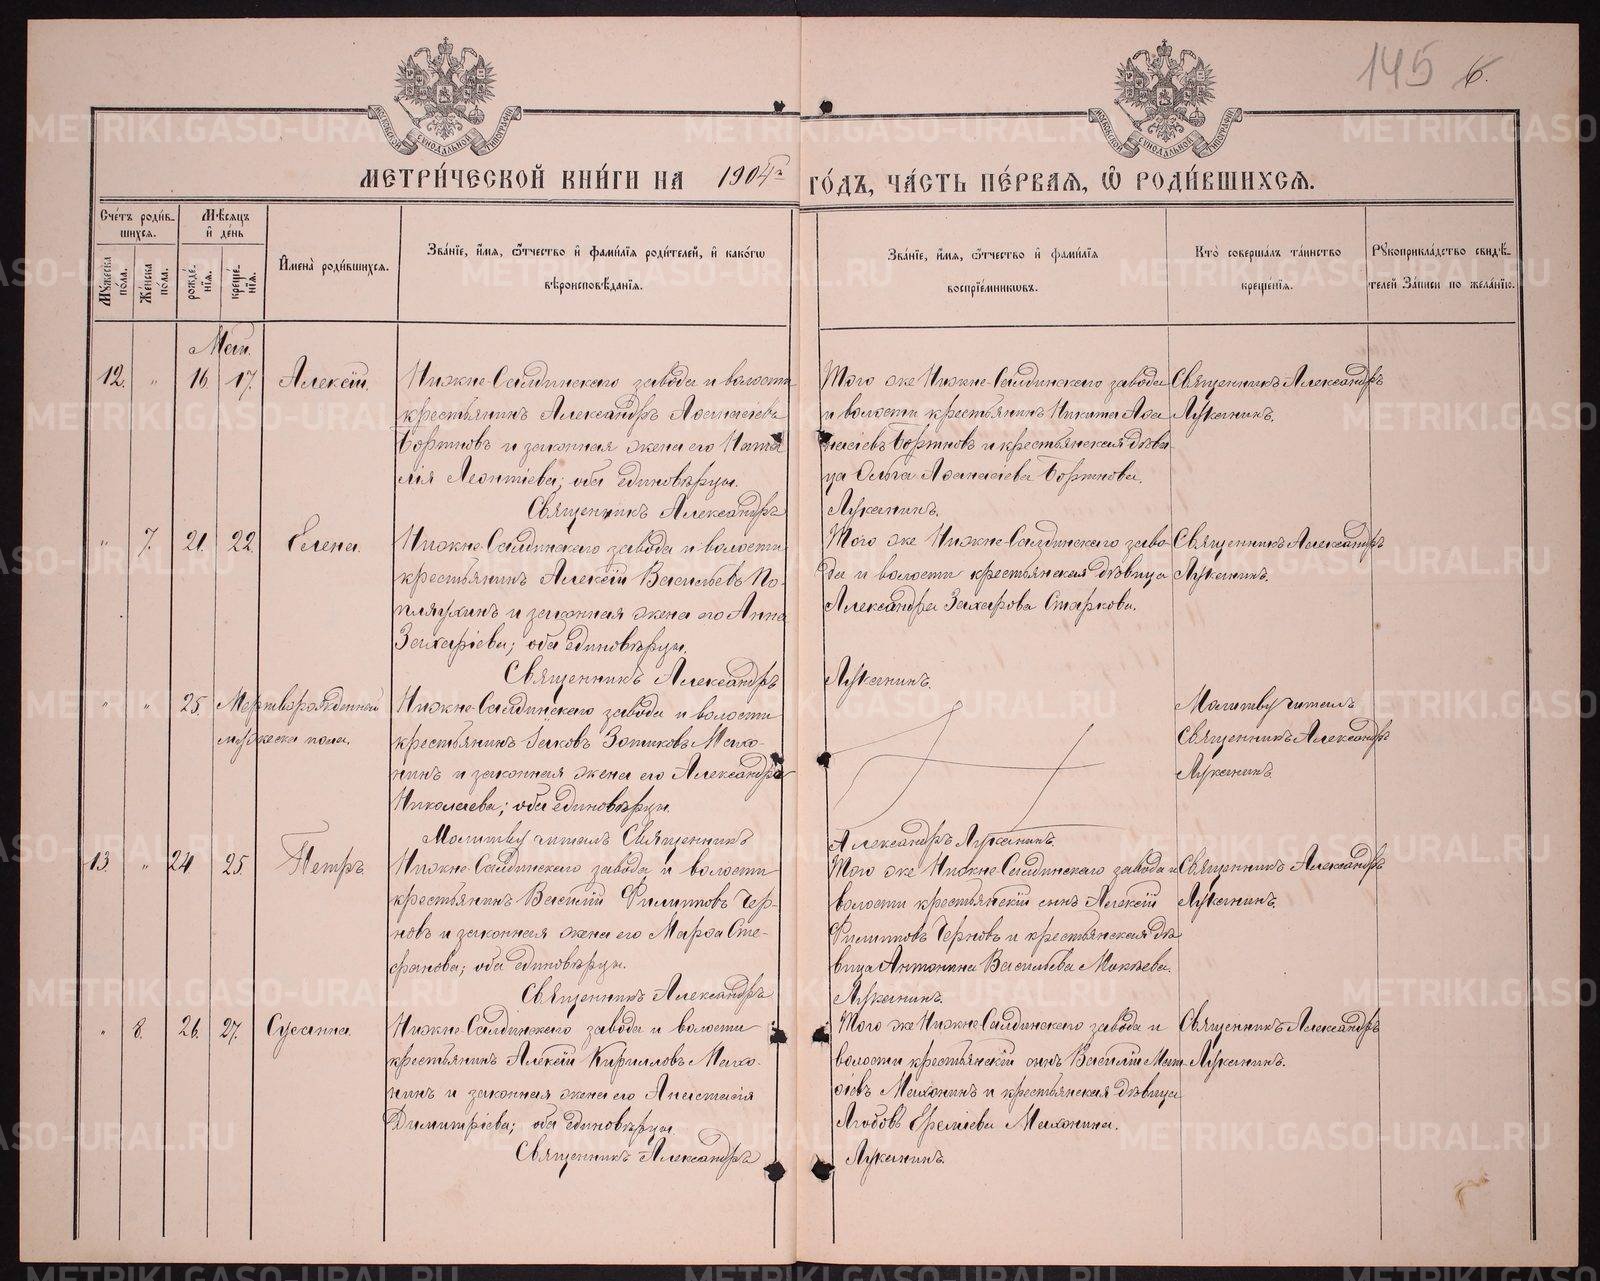 145 6.
МОСКОВСКОЙ СѴНОДАЛЬНОЙ ТИПОГРАФІИ
МОСКОВСКОЙ СѴНОДАЛЬНОЙ ТИПОГРАФІИ
МЕТРИ́ЧЕСКОЙ КНИ́ГИ НА 1904й ГО́ДЪ, ЧА́СТЬ ПЕ́РВАЯ, Ѡ РОДИ́ВШИХСЯ.
Сче́тъ роди́вшихся.
Мѣ́сяцъ и де́нь
Мꙋ́жеска по́ла.
Же́нска по́ла.
рожде́нїя.
креще́нїя.
Имена̀ роди́вшихся.
Зва́нїе, и́мя, ѻ́тчество и фами́лїя роди́телей, и како́гѡ вѣроисповѣ́данїя.
Зва́нїе, и́мя, ѻ́тчество и фами́лїя воспрїе́мникѡвъ.
Кто̀ соверша́лъ та́инство креще́нїя.
Рꙋкоприкла́дство свидѣ́телей за́писи по жела́нїю.
Май.
12. " 16. 17. Алексій.
Нижне-Салдинскаго завода и волости
крестьянинъ Александръ Аѳанасіевъ
Бортновъ и законная жена его Ната-
лія Леонтіева; оба единовѣрцы.
Священникъ Александръ Луканинъ.
Того же Нижне-Салдинскаго завода
и волости крестьянинъ Никита Аѳа
насіевъ Бортновъ и крестьянская дѣви-
ца Ольга Аѳанасіева Бортнова.
Священникъ Александръ
Луканинъ.
" 7. 21. 22. Елена.
Нижне-Салдинскаго завода и волости
крестьянинъ Алексій Васильевъ По-
пляухинъ и законная жена его Анна
Захаріева; оба единовѣрцы.
Священникъ Александръ Луканинъ.
Того же Нижне-Салдинскаго заво-
да и волости крестьянская дѣвица
Александра Захарова Старкова.
Священникъ Александръ
Луканинъ.
" " 25. Мертворожденный
мужеска пола.
Нижне-Салдинскаго завода и волости
крестьянинъ Іаковъ Зотиковъ Махо-
нинъ и законная жена его Александра
Николаева; оба единовѣрцы.
Молитву читалъ Священникъ Александръ Луканинъ.
Молитву читалъ
Священникъ Александръ
Луканинъ.
13. " 24. 25. Петръ.
Нижне-Салдинскаго завода и волости
крестьянинъ Василій Филипповъ Чер-
новъ и законная жена его Марѳа Сте-
фанова; оба единовѣрцы.
Священникъ Александръ Луканинъ.
Того же Нижне-Салдинскаго завода и
волости крестьянскій сынъ Алексій
Филипповъ Черновъ и крестьянская дѣ
вица Антонина Васильева Мокѣева.
Священникъ Александръ
Луканинъ.
" 8. 26. 27. Сусанна.
Нижне-Салдинскаго завода и волости
крестьянинъ Алексій Кирилловъ Махо-
нинъ и законная жена его Анастасія
Димитріева; оба единовѣрцы.
Священникъ Александръ Луканинъ.
Того же Нижне-Салдинскаго завода и
волости крестьянскій сынъ Василій Мат-
ѳіевъ Махонинъ и крестьянская дѣвица
Любовь Ереміева Махонина.
Священникъ Александръ
Луканинъ.
METRIKI.GASO-URAL.RU